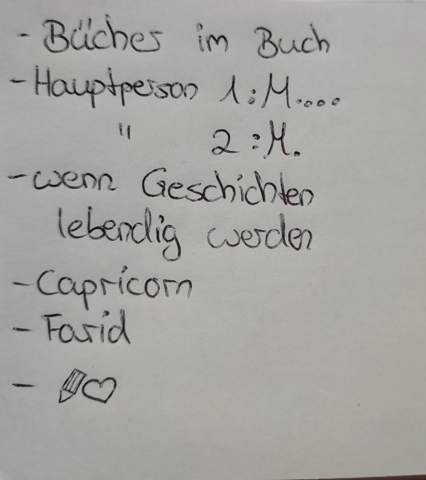 - Büches im Buch
- Hauptperson 1:M....
" 2:M.
- wenn Geschichten
lebendig werden
- Capricorn
- Farid
-